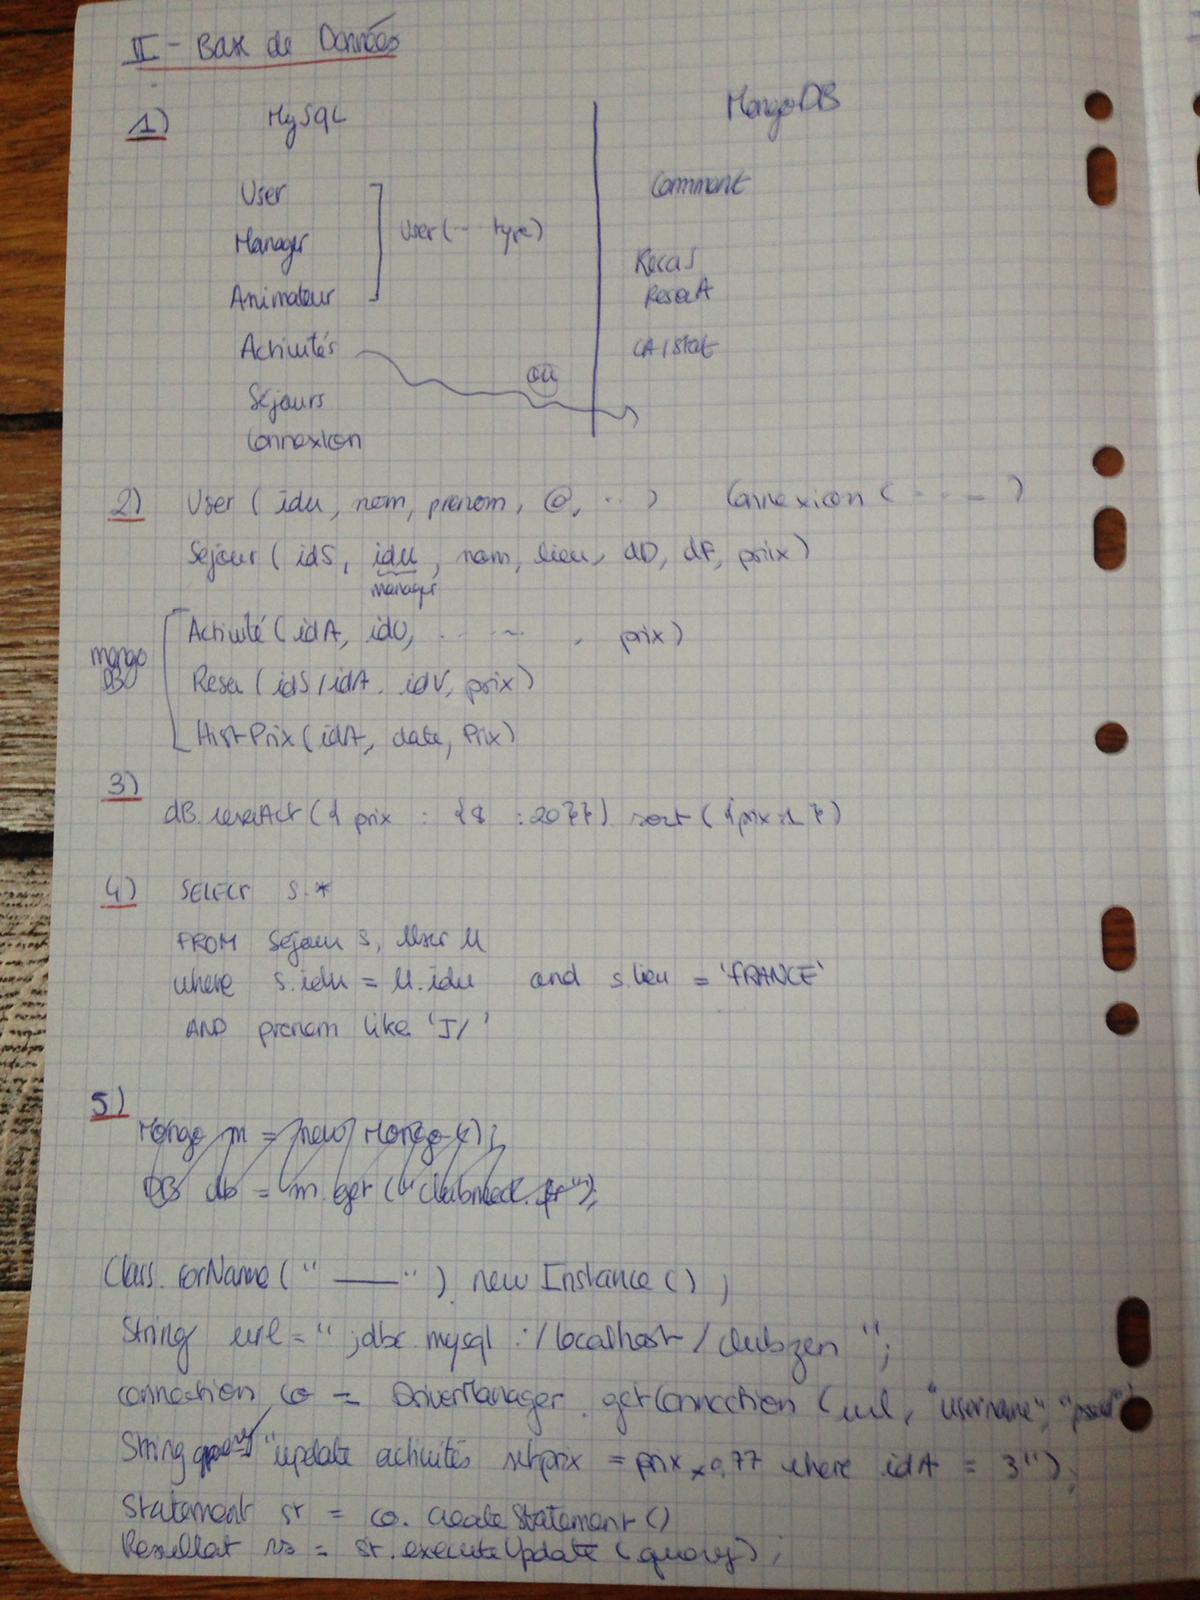 II - Base de Données
1) MySQL MongoDB
User
Manager
Animateur
User (-- type)
Activités
Séjours
Connexion
ou
Comment
ResaS
ResaA
CA/Stat
2) User (idu, nom, prenom, @, ...) Connexion (- - - -)
Séjour (idS, idU, nom, lieu, dD, dF, prix)
manager
mongo DB
Activité (idA, idU, ..... , prix)
Resa (idS/idA, idV, prix)
HistPrix (idA, date, Prix)
3)
dB.resaAct({prix : {$ :20}}) sort({prix:1})
4) SELECT S.*
FROM Sejour S, User U
where s.idu = U.idu and s.lieu = 'FRANCE'
AND prenom like 'J/'
5)
Mongo m = new Mongo();
DB db = m.get("clubmed.fr");
Class.forName("——").newInstance();
String url = "jdbc mysql ://localhost/clubzen";
connection co = DriverManager.getConnection(url, "username",
String query "update activités set prix = prix x 0,77 where idA = 3");
Statement st = co.createStatement()
Resultat rs = st.executeUpdate(query);